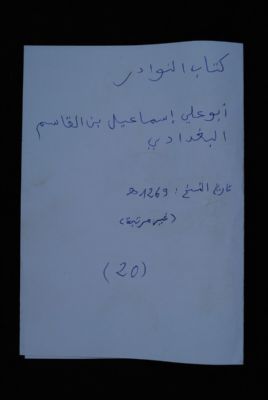 كتاب النوادر
أبو علي إسماعيل بن القاسم
البغدادي
تاريخ النسخ : 1269 هـ
(غير مرتبة)
(20)